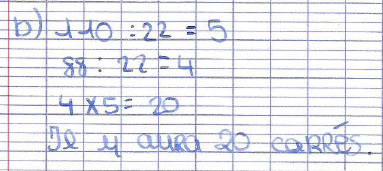 b) 110 : 22 = 5
88 : 22 = 4
4 x 5 = 20
Il y aura 20 carrés.